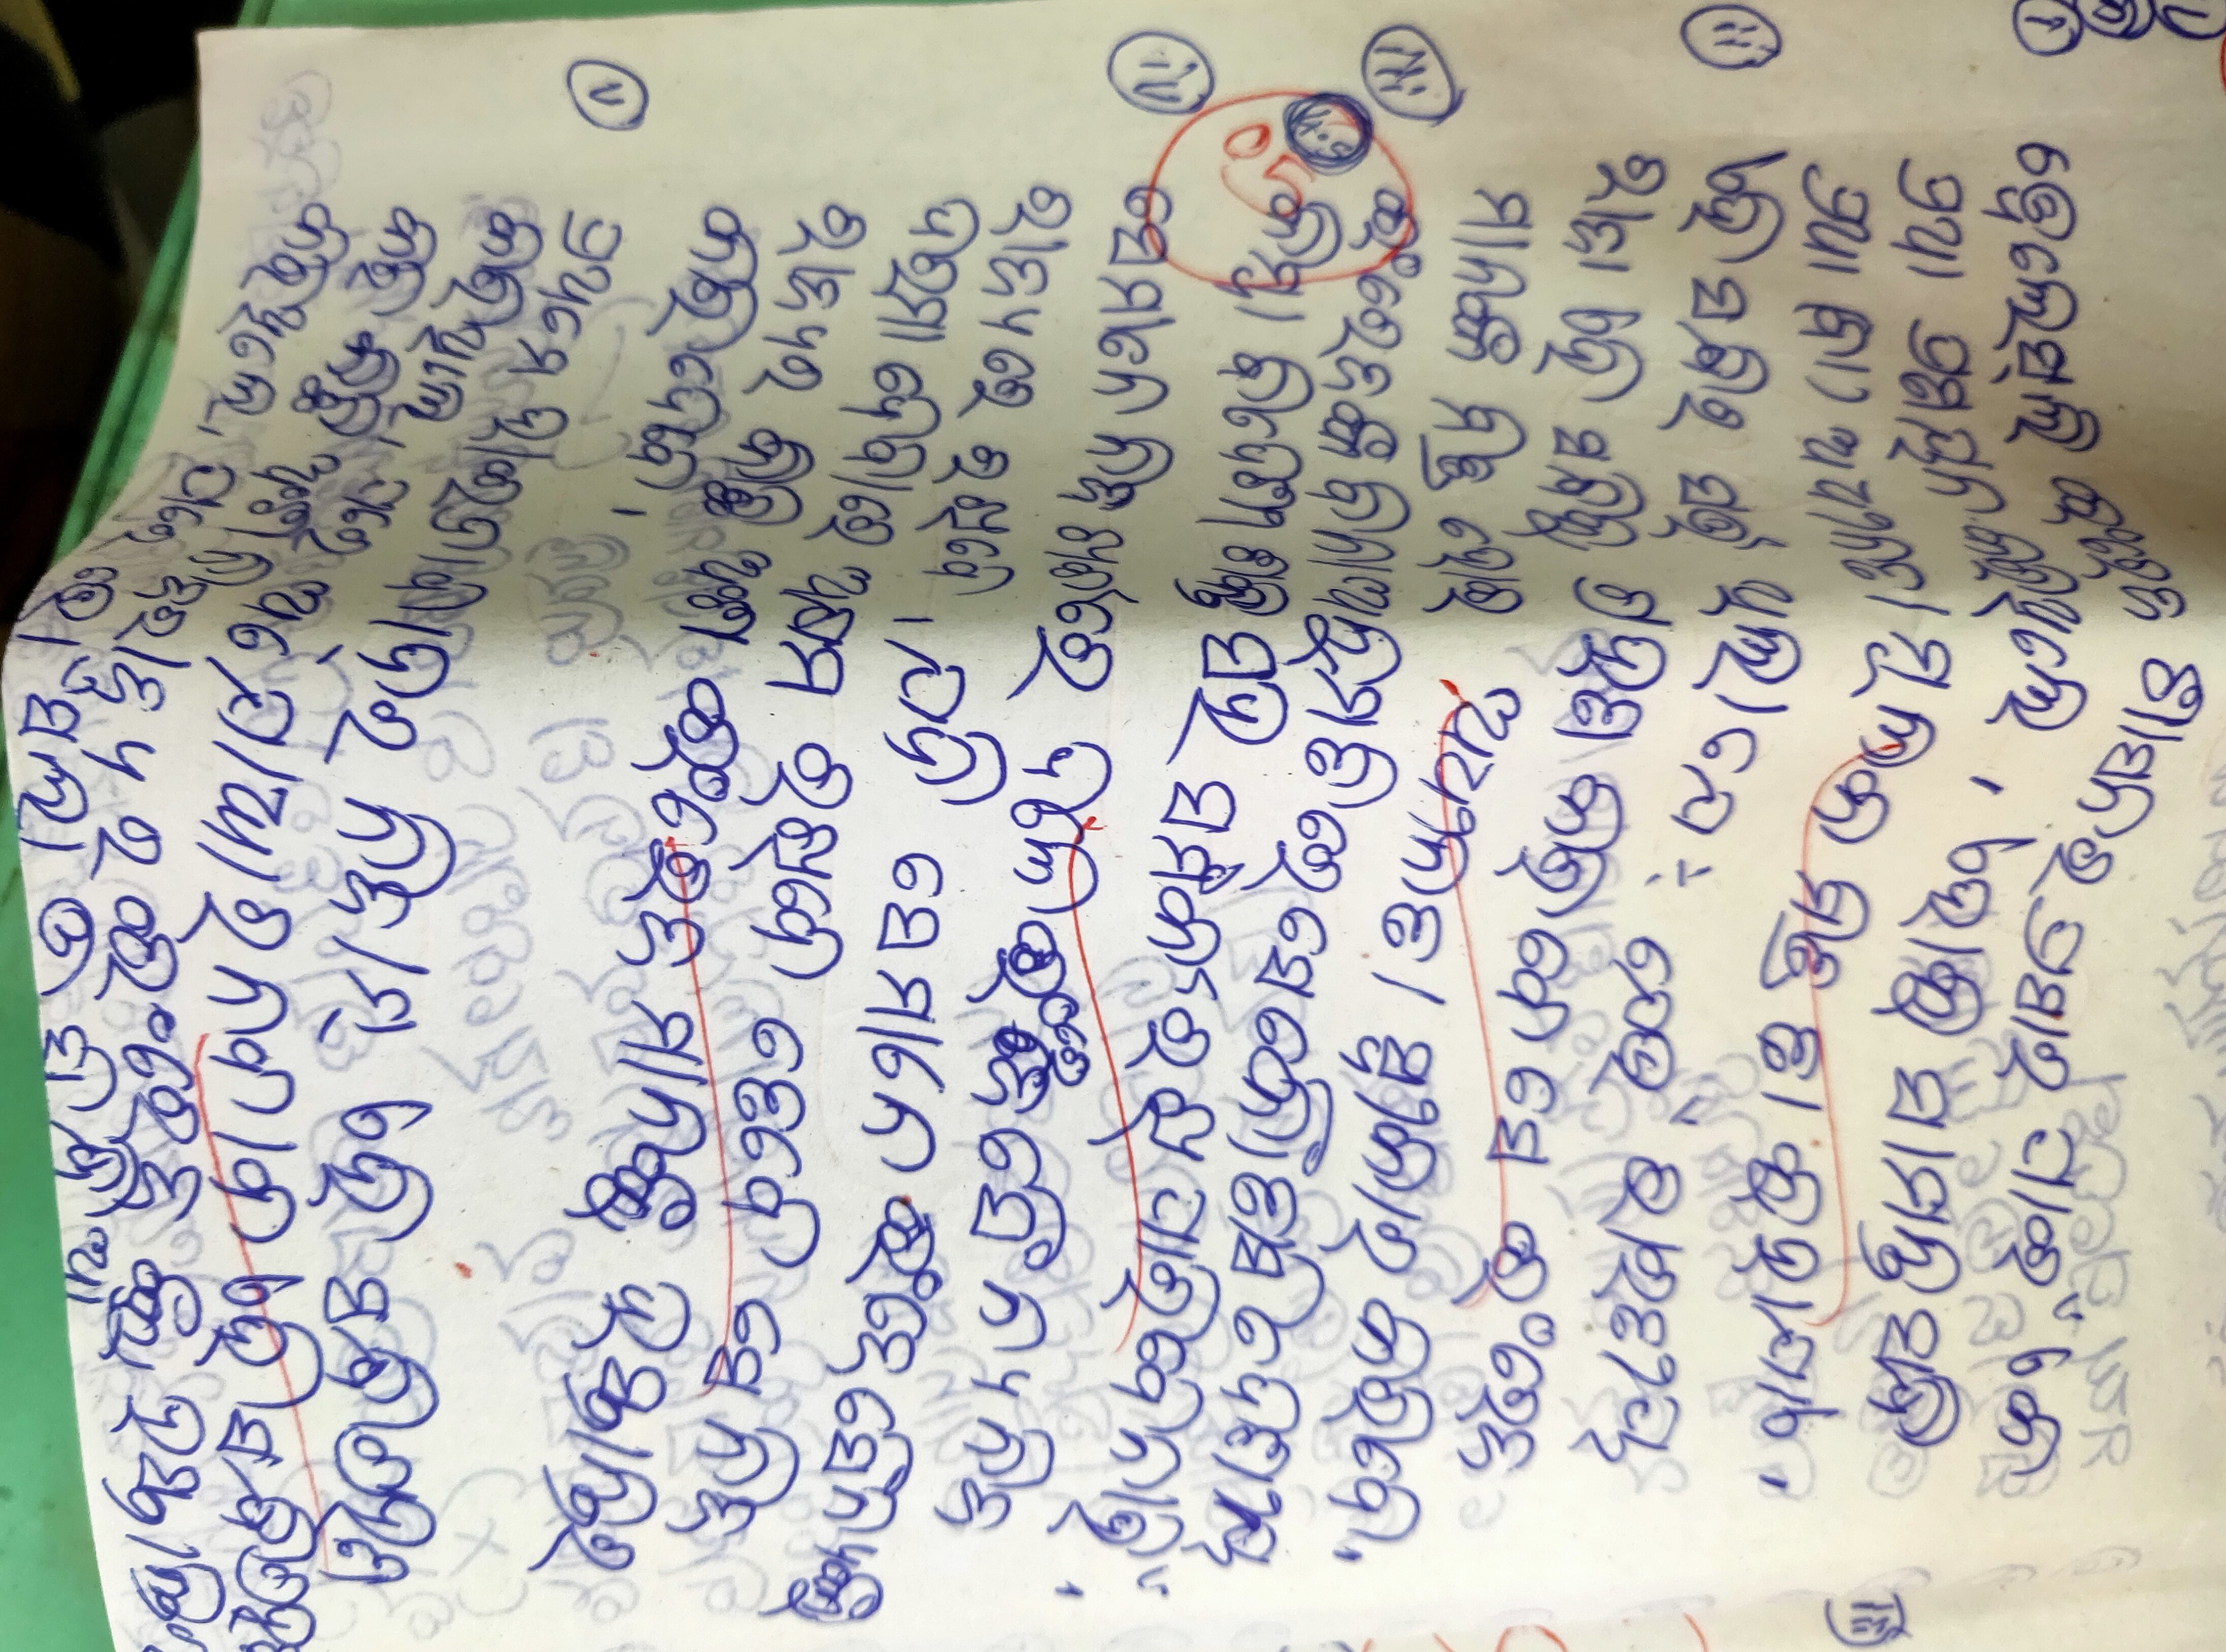 i) ୱେଲେସ୍‌ଲି ଇଂରେଜ ଶାସନର ପ୍ରସାର ପାଇଁ ଏକ
ପ୍ରଥା ପ୍ରଣୟନ କରିଥିଲେ, ଏହାକୁ ସାମନ୍ତ ସନ୍ଧି
ପ୍ରଥା (ବା) ଅଧୀନତା ମୂଳକ ମିତ୍ର ତା କୁହାଯାଏ,
ii) ଏହି ସନ୍ଧିର ସର୍ତ୍ତ ଥିଲା ଯେ :- ଯେଉଁ ଭାରତୀୟ
ରାଜା ଏହି ସନ୍ଧିକୁ ଗ୍ରହଣ କରିବେ ସେ ଇଂରେଜ
ମାନଙ୍କ ମିତ୍ର ହୋଇ ଅଧୀନତା ସ୍ୱୀକାର କରିବେ,
iii) ଇଂରେଜଙ୍କ ବିନା ଅନୁମତି ରେ ସେ କୌଣସି ଦେଶୀୟ
କିମ୍ବା ବିଦେଶୀ ଶକ୍ତି ସହ ସମ୍ପର୍କ ରଖି ପାରିବେ ନାହିଁ,
iv) ସେମାନେ ନିଜ ଖର୍ଚ୍ଚରେ ଦଳେ ଇଂରେଜ ସୈନ୍ୟ ନିଜ
ରାଜ୍ୟ ରେ ରଖିବେ, ଯଦି ସେମାନେ ଇଂରେଜ ସୈନ୍ୟଙ୍କୁ
ଦରମା ଦେବାରେ ଅକ୍ଷମ ରଖିବେ ତେବେ ସେ ନିଜ
ରାଜ୍ୟର କିଛି ଅଂଶ ଇଂରେଜ ମାନଙ୍କୁ ହସ୍ତାନ୍ତର
କରି ଦେବେ,
v) ପ୍ରଥମେ ହାଇଦ୍ରାବାଦ୍‌ର ନିଜାମ୍ ଏହି ସନ୍ଧି ଗ୍ରହଣ
କରିଥିଲେ, ପରେ ଅଯୋଧ୍ୟାର ନବାବ ଏହି ସନ୍ଧି ଗ୍ରହଣ
କରି କିଛି ଅଂଶ ନିଜ ରାଜ୍ୟ ର ଇଂରେଜ ଙ୍କୁ ହସ୍ତାନ୍ତର
କରିଥିଲେ, ପରେ ଭୋଁସଲା ଓ ସିନ୍ଧିଆ